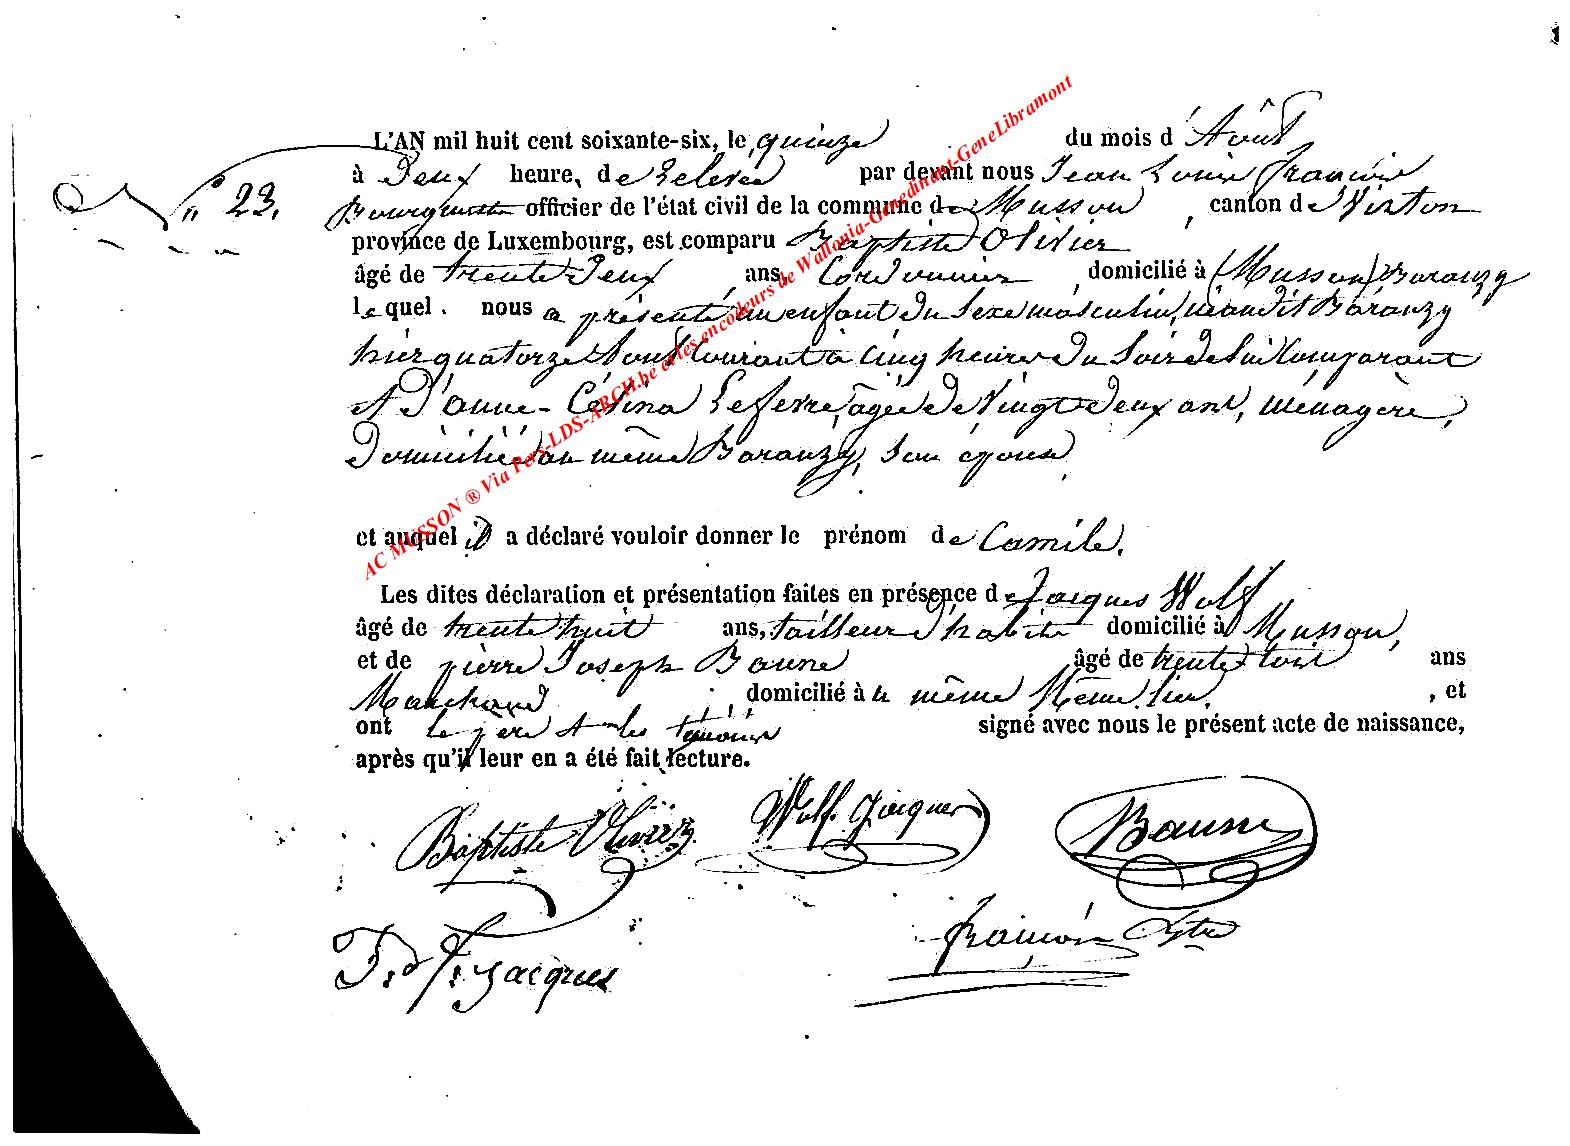 L'AN mil huit cent soixante-six, le quinze du mois d'Août
à Deux heure, de relevée par devant nous Jean Louis François
N° 23. Bourguette officier de l'état civil de la commune de Musson, canton de Virton
province de Luxembourg, est comparu Baptiste Olivier
âgé de trente Deux ans, Cordonnier, domicilié à (Musson) Baranzy
lequel nous a présenté un enfant du sexe masculin, né audit Baranzy
hier quatorze Août Courant à Cinq heures du Soir de lui Comparant
et D'anne-Célina Lefevre, âgée de Vingt Deux ans, ménagère,
Domiciliée au même Baranzy, son épouse,
et auquel il a déclaré vouloir donner le prénom de Camile.
Les dites déclaration et présentation faites en présence de Jacques Wolf
âgé de trente huit ans, tailleur d'habits domicilié à Musson,
et de pierre Joseph Baune âgé de trente trois ans
Marchand, domicilié à u même Même lieu, , et
ont le père et les témoins signé avec nous le présent acte de naissance,
après qu'il leur en a été fait lecture.
Baptiste Olivier Wolf Jacques Baune
Jacques François
AC MUSSON ® Via Pers-LDS-ARCH.be et les encodeurs de Wallonia-Genedinant-GeneLibramont